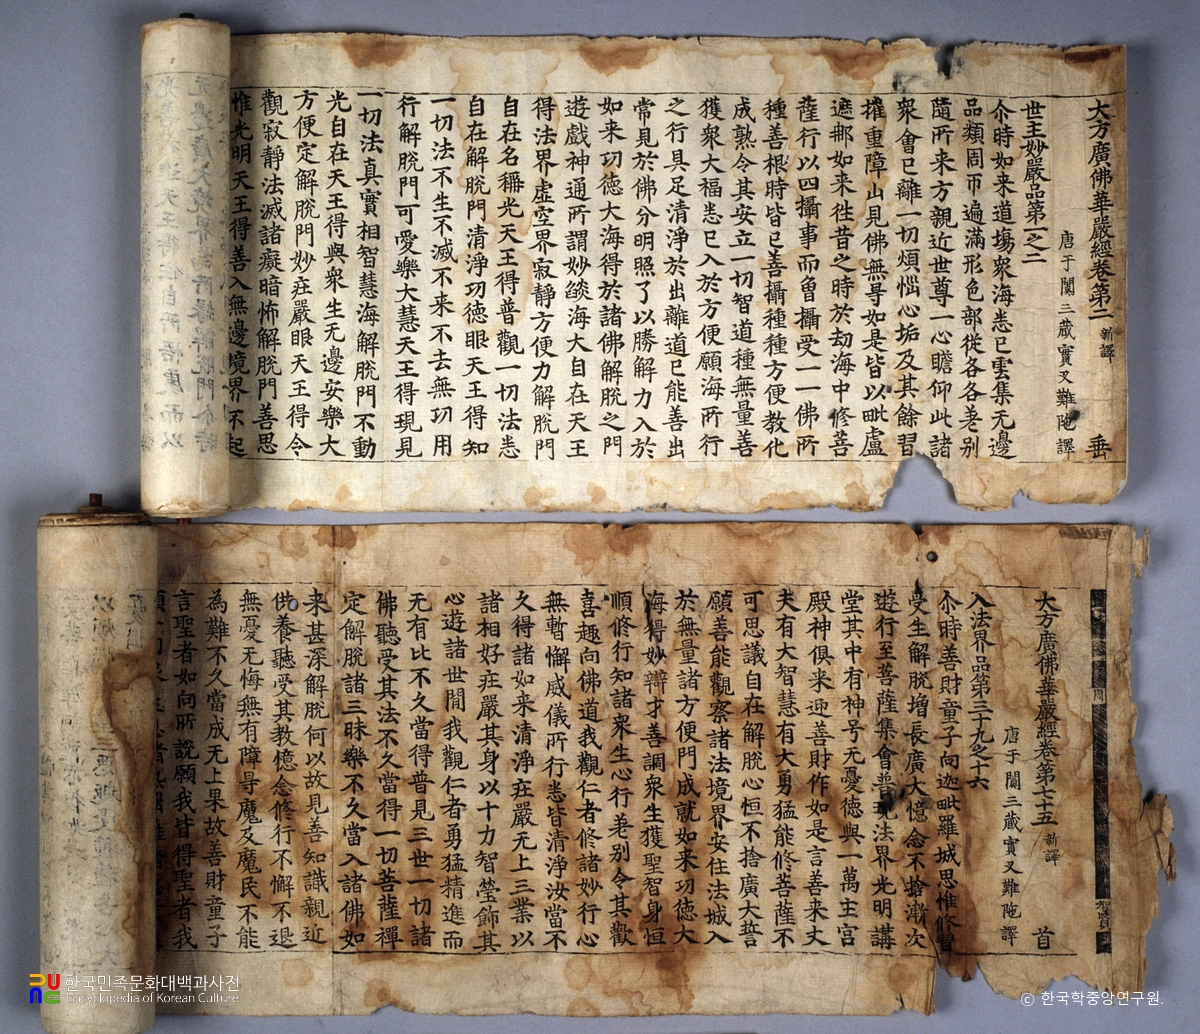 大方廣佛華嚴經卷第二 新譯 垂
唐于闐三藏實叉難陁譯
世主妙嚴品第一之二
尒時如来道場衆海悉已雲集无邊
品類周帀遍滿形色部從各各差别
隨所来方親近世尊一心瞻仰此諸
衆會已離一切煩惱心垢及其餘習
摧重障山見佛無㝵如是皆以毗盧
遮那如来往昔之時於劫海中修菩
薩行以四攝事而曽攝受一一佛所
種善根時皆已善攝種種方便教化
成熟令其安立一切智道種無量善
獲衆大福悉已入於方便願海所行
之行具足清淨於出離道已能善出
常見於佛分明照了以勝解力入於
如来功德大海得於諸佛解脫之門
遊戲神通所謂妙燄海大自在天王
得法界虛空界寂靜方便力解脫門
自在名稱光天王得普觀一切法悉
自在解脫門清淨功德眼天王得知
一切法不生不滅不来不去無功用
行解脫門可愛樂大慧天王得現見
一切法真實相智慧海解脫門不動
光自在天王得與衆生无邊安樂大
方便定解脫門妙莊嚴眼天王得令
觀寂靜法滅諸癡暗怖解脫門善思
惟光明天王得善入無邊境界不起
大方廣佛華嚴經卷第七十五 新譯 首
唐于闐三藏實叉難陁譯
入法界品第三十九之十六
尒時善財童子向迦毗羅城思惟修習
受生解脫增長廣大憶念不捨漸次
遊行至菩薩集會普現法界光明講
堂其中有神号无憂德與一萬主宮
殿神俱来迎善財作如是言善来丈
夫有大智慧有大勇猛能修菩薩不
可思議自在解脫心恒不捨廣大誓
願善能觀察諸法境界安住法城入
於無量諸方便門成就如来功德大
海得妙辯才善調衆生獲聖智身恒
順修行知諸衆生心行差别令其歡
喜趣向佛道我觀仁者修諸妙行心
無暫懈威儀所行悉皆清淨汝當不
久得諸如来清淨莊嚴无上三業以
諸相好莊嚴其身以十力智瑩飾其
心遊諸世間我觀仁者勇猛精進而
无有比不久當得普見三世一切諸
佛聽受其法不久當得一切菩薩禪
定解脫諸三昧樂不久當入諸佛如
来甚深解脫何以故見善知識親近
供養聽受其教憶念修行不懈不退
無憂无悔無有障㝵魔及魔民不能
為難不久當成无上果故善財童子
言聖者如向所說願我皆得聖者我
한국민족문화대백과사전
Encyclopedia of Korean Culture
© 한국학중앙연구원.